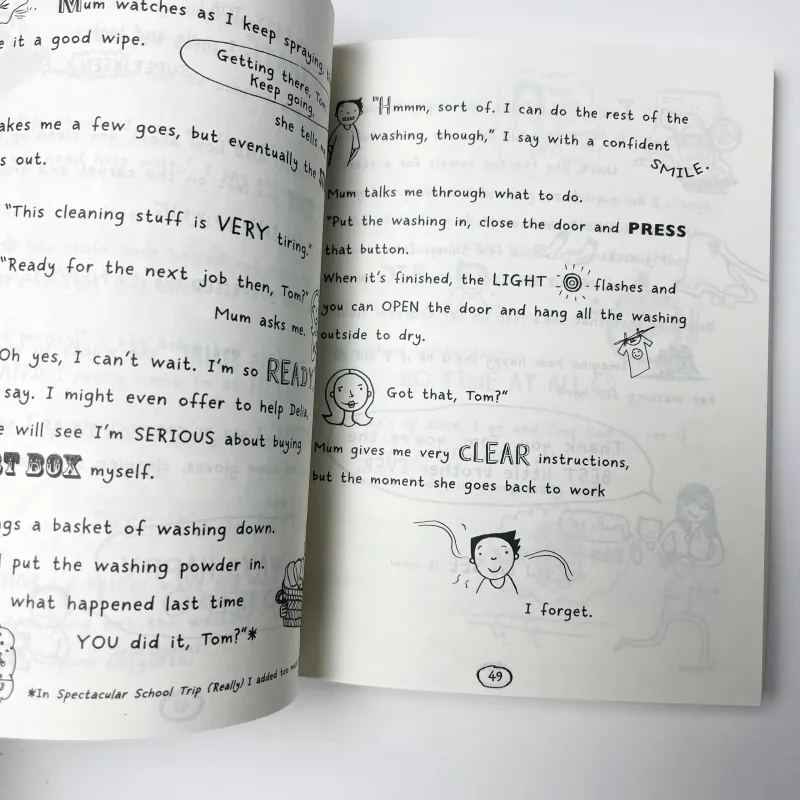 Mum watches as I keep spraying,
it a good wipe.
Getting there, Tom
Keep going,
she tells
me a few goes, but eventually the
out.
"This cleaning stuff is VERY tiring."
"Ready for the next job then, Tom?"
Mum asks me.
Oh yes, I can't wait. I'm so READY
say. I might even offer to help Delia,
will see I'm SERIOUS about buying
BOX myself.
a basket of washing down.
put the washing powder in.
what happened last time
YOU did it, Tom?"*
*In Spectacular School Trip (Really) I added too
"Hmmm, sort of. I can do the rest of the
washing, though," I say with a confident
SMILE.
Mum talks me through what to do.
"Put the washing in, close the door and PRESS
that button.
When it's finished, the LIGHT flashes and
you can OPEN the door and hang all the washing
outside to dry.
Got that, Tom?"
Mum gives me very CLEAR instructions,
but the moment she goes back to work
I forget.
49